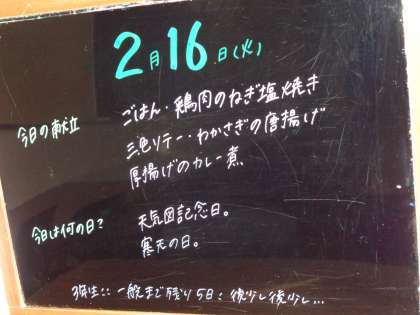 2月16日(火)
今日の献立
ごはん・鶏肉のねぎ塩焼き
三色ソテー・わかさぎの唐揚げ
厚揚げのカレー煮
今日は何の日?
天気図記念日。
寒天の日。
3年生:: 一般まで残り5日: 後少し後少し...